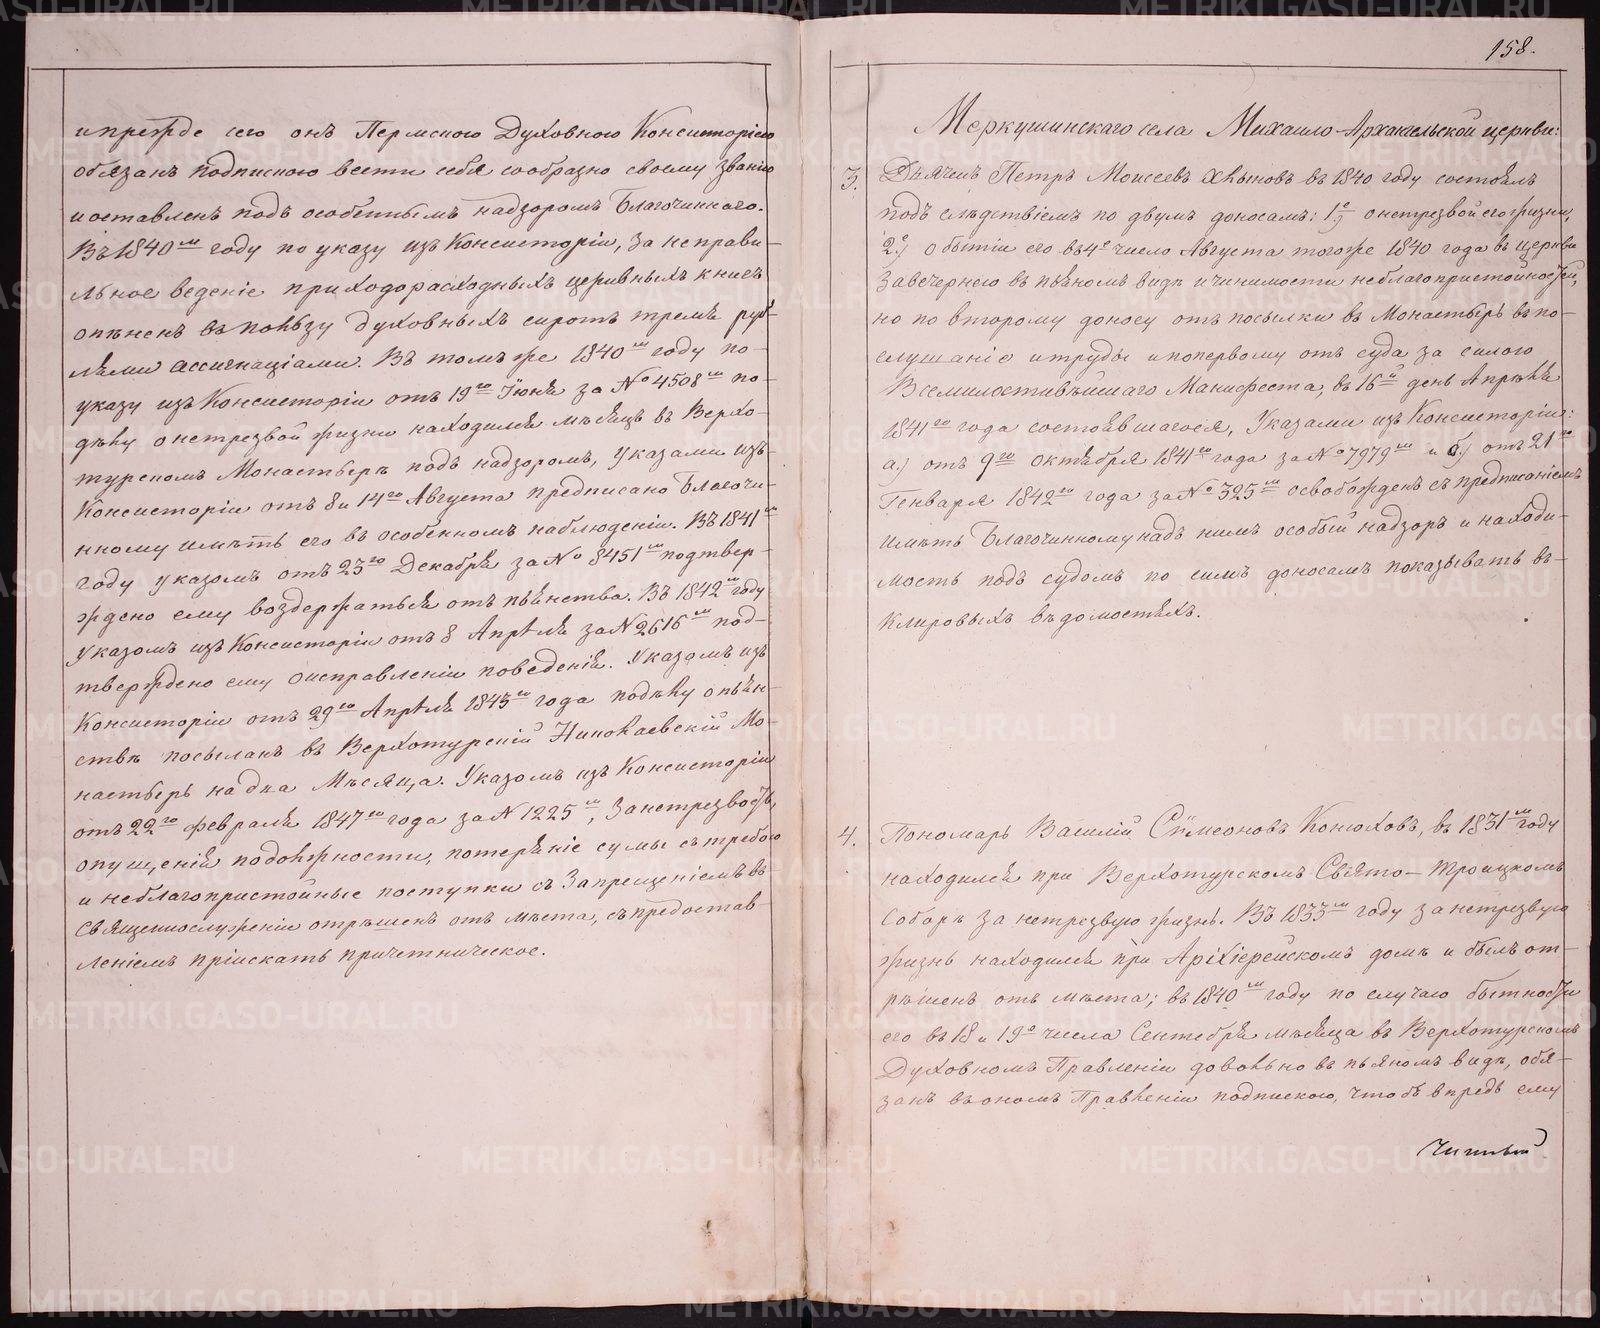 и прежде сего онъ Пермскою Духовною Консисторіею
обязанъ подпискою вести себя сообразно своему званію
и оставленъ подъ особеннымъ надзоромъ Благочиннаго.
Въ 1840мъ году по указу изъ Консисторіи, за неправи-
льное веденіе приходорасходныхъ церквныхъ книгъ
опѣненъ въ пользу духовныхъ сиротъ тремя руб-
лями ассигнаціами. Въ томъ же 1840мъ году по-
указу изъ Консисторіи отъ 19го Іюня за № 4508мъ по-
дѣлу о нетрезвой жизни находился мѣсяцъ въ Верхо-
турскомъ Монастырѣ подъ надзоромъ, указами изъ
Консисторіи отъ 8 и 14го Августа предписано Благочи-
нному имѣть его въ особенномъ наблюденіи. Въ 1841мъ
году указомъ отъ 23го Декабря за № 8451мъ подтвер-
ждено ему воздержаться отъ пьянства. Въ 1842мъ году
указомъ изъ Консисторіи отъ 8 Апрѣля за № 2616мъ под-
тверждено ему о исправленіи поведенія. Указомъ изъ
Консисторіи отъ 29го Апрѣля 1843го года по дѣлу о пьян-
ствѣ посыланъ въ Верхотурскій Николаевскій Мо-
настырь на два Мѣсяца. Указомъ изъ Консисторіи
отъ 22го февраля 1847го года за № 1225мъ, За нетрезвость,
опущенія по должности, потеряніе сумы съ требою
и неблагопристойные поступки съ Запрещеніемъ въ
Священнослуженіи отрѣшенъ отъ мѣста, съ предостав-
леніемъ пріискать причетническое.
158.
Меркушинскаго села Михаило-Архангельской церкви:
3. Дьячекъ Петръ Моисеевъ Хлыновъ въ 1840 году состоялъ
подъ слѣдствіемъ по двумъ доносамъ: 1е) о нетрезвой его жизни,
2е) о бытіи его въ 4е число Августа того же 1840 года въ церкви
за вечернею въ пьяномъ видѣ и чинимости неблагопристойностей,
но по второму доносу отъ посылки въ Монастырь въ по-
слушаніе и труды и по первому отъ суда за силою
Всемилостивѣйшаго Манифеста, въ 16й день Апрѣля
1841го года состоявшагося, Указами изъ Консисторіи:
а.) отъ 9го октября 1841го года за № 7979мъ и б.) отъ 21го
Генваря 1842го года за № 325мъ освобожденъ съ предписаніемъ
имѣть Благочинному надъ нимъ особый надзоръ и находи-
мость подъ судомъ по симъ доносамъ показывать въ-
клировыхъ вѣдомостяхъ.
4. Пономарь Василій Сѵмеоновъ Конюховъ, въ 1831мъ году
находился при Верхотурскомъ Свято-Троицкомъ
Соборѣ за нетрезвую жизнь. Въ 1833мъ году за нетрезвую
жизнь находился при Архіерейскомъ домѣ и былъ от-
рѣшенъ отъ мѣста; въ 1840мъ году по случаю бытности
его въ 18 и 19е числа Сентября мѣсяца въ Верхотурскомъ
Духовномъ Правленіи довольно въ пьяномъ видѣ, обя-
занъ въ ономъ Правленіи подпискою, чтобъ впредь ему
METRIKI.GASO-URAL.RU